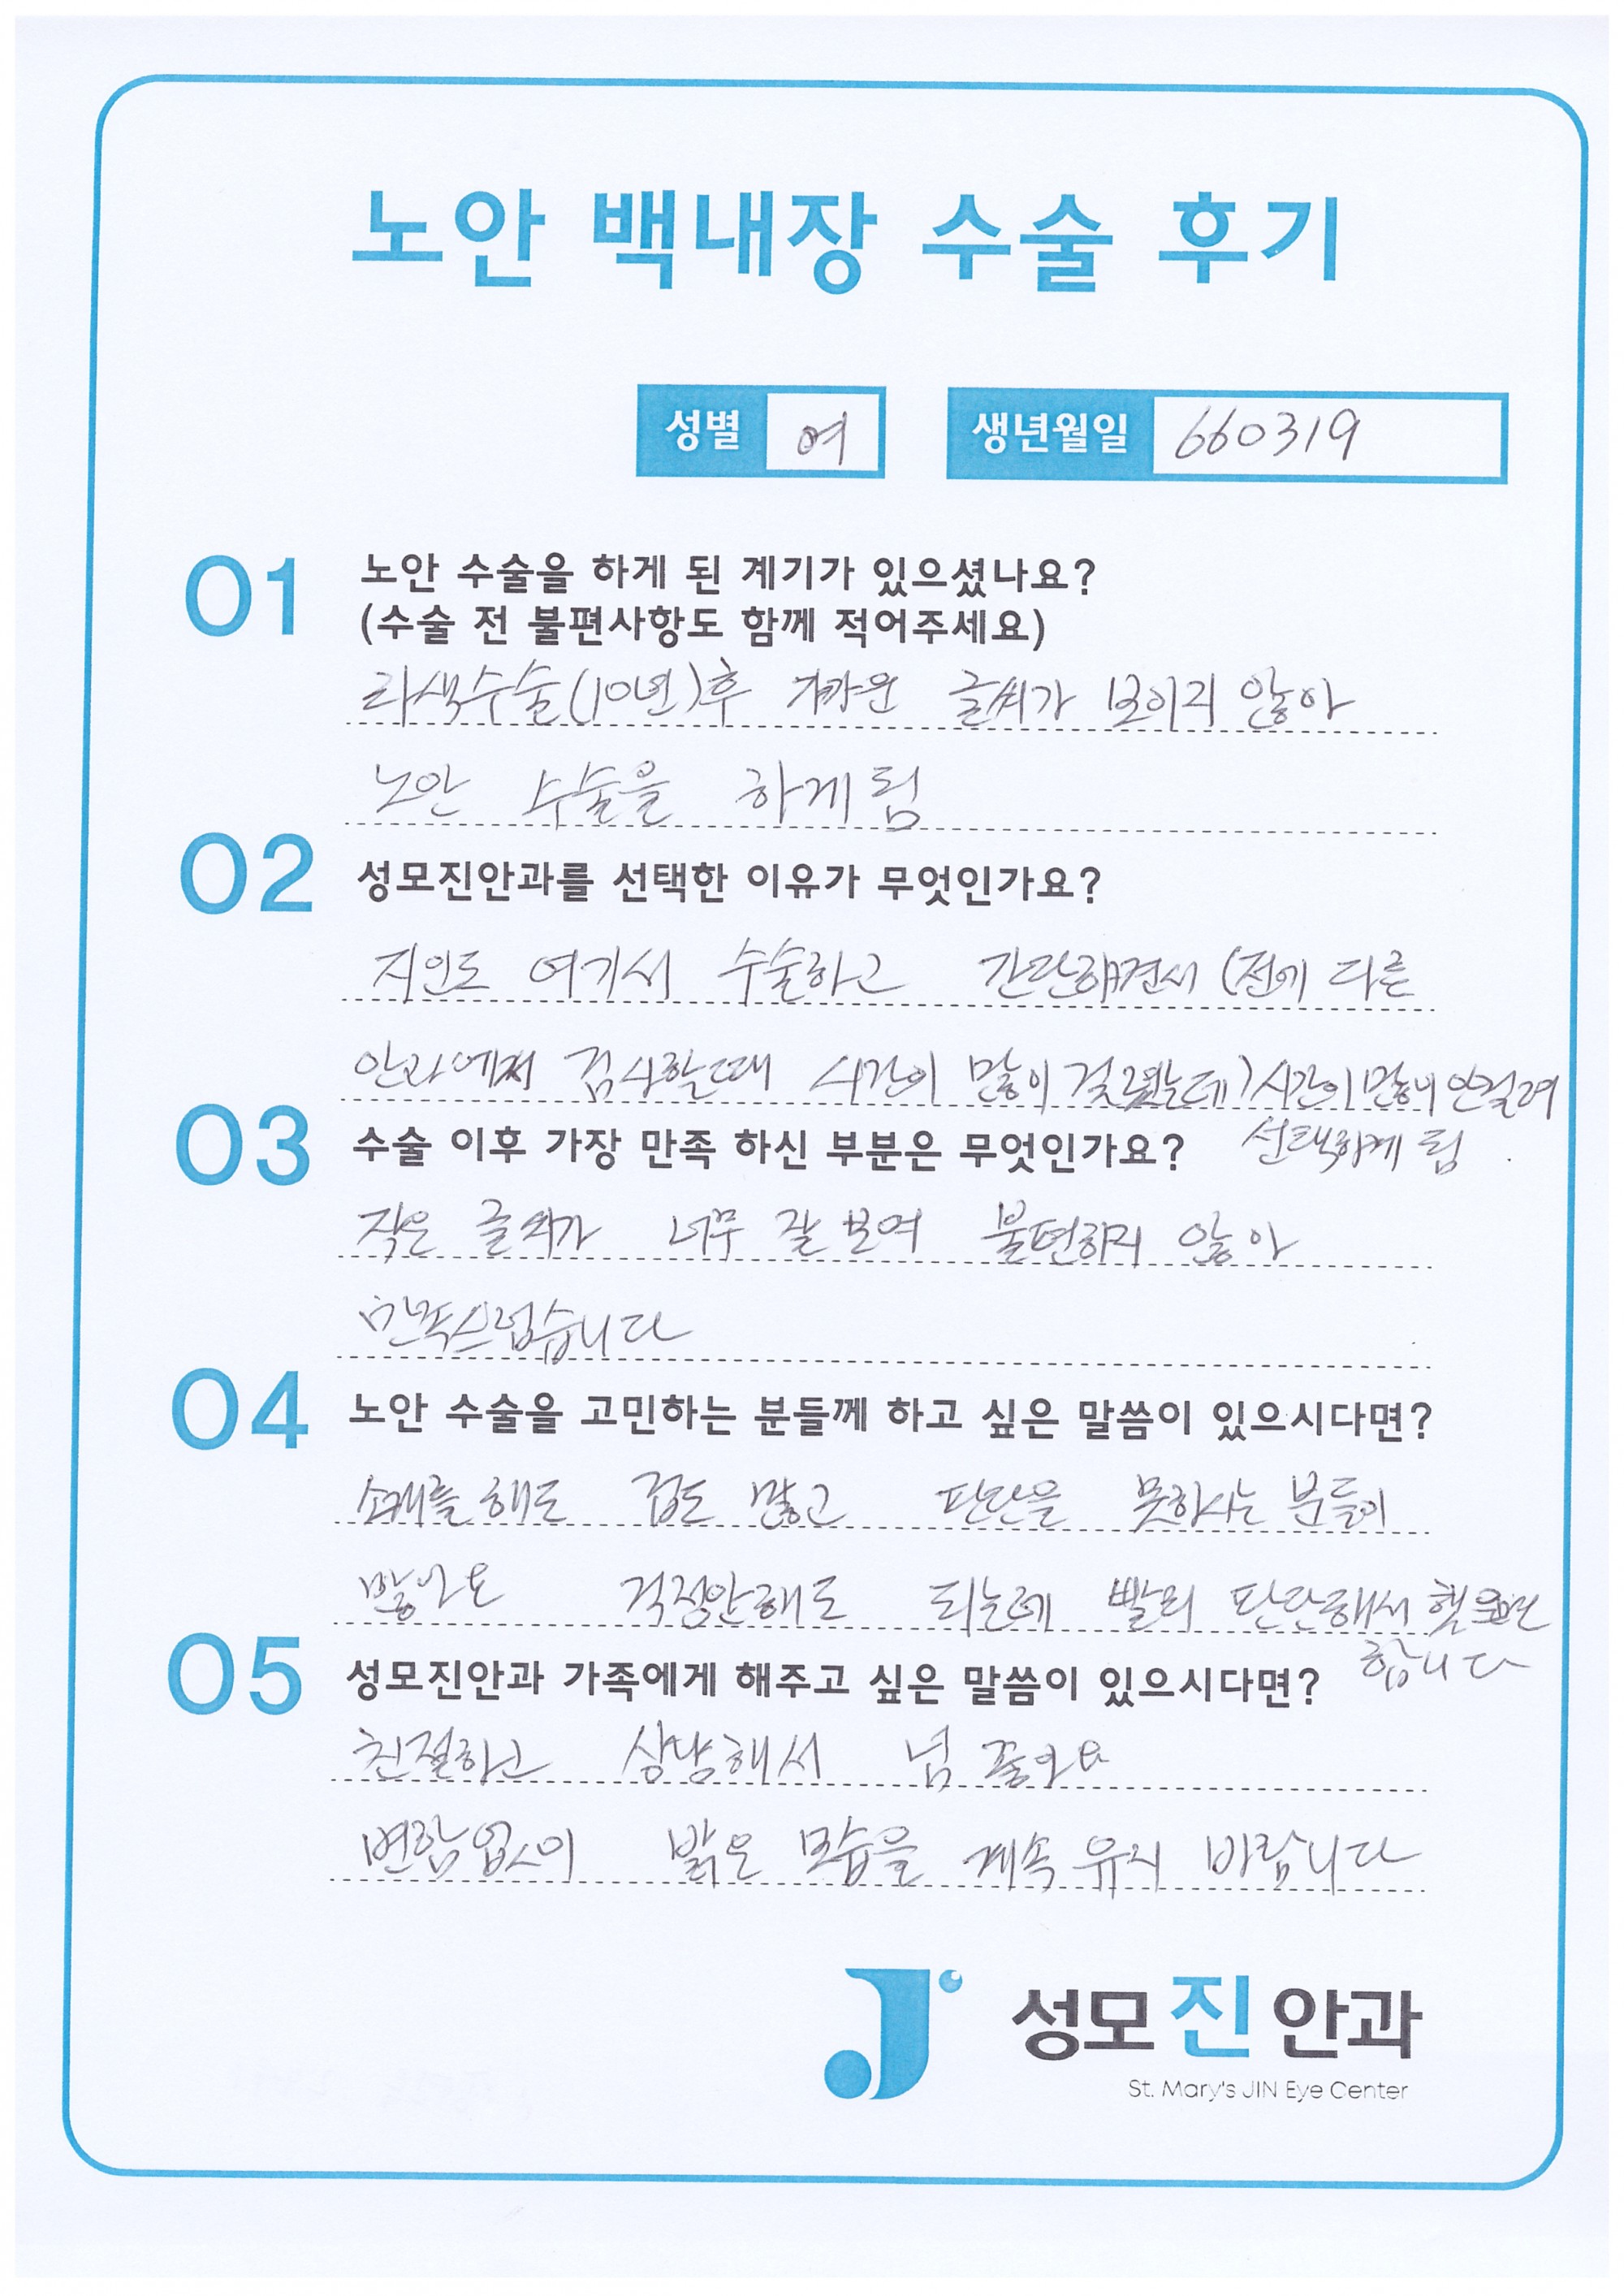 노안 백내장 수술 후기
성별 여 생년월일 660319
01 노안 수술을 하게 된 계기가 있으셨나요?
(수술 전 불편사항도 함께 적어주세요)
라색수술(10년)후 가까운 글씨가 보이지 않아
노안 수술을 하게 됨
02 성모진안과를 선택한 이유가 무엇인가요?
지인도 여기서 수술하고 간단해면서 (전에 다른
안과에서 검사할때 시간이 많이 걸렸는데) 시간이 많이 안걸려
선택하게 됨
03 수술 이후 가장 만족 하신 부분은 무엇인가요?
작은 글씨가 너무 잘 보여 불편하지 않아
만족스럽습니다
04 노안 수술을 고민하는 분들께 하고 싶은 말씀이 있으시다면?
소개를 해도 겁도 많고 판단을 못하시는 분들이
많아요 걱정안해도 되는데 빨리 판단해서 했으면
합니다
05 성모진안과 가족에게 해주고 싶은 말씀이 있으시다면?
친절하고 상냥해서 넘 좋아요
변함없이 밝은 모습을 계속 유지 바랍니다
성모진안과
St. Mary's JIN Eye Center